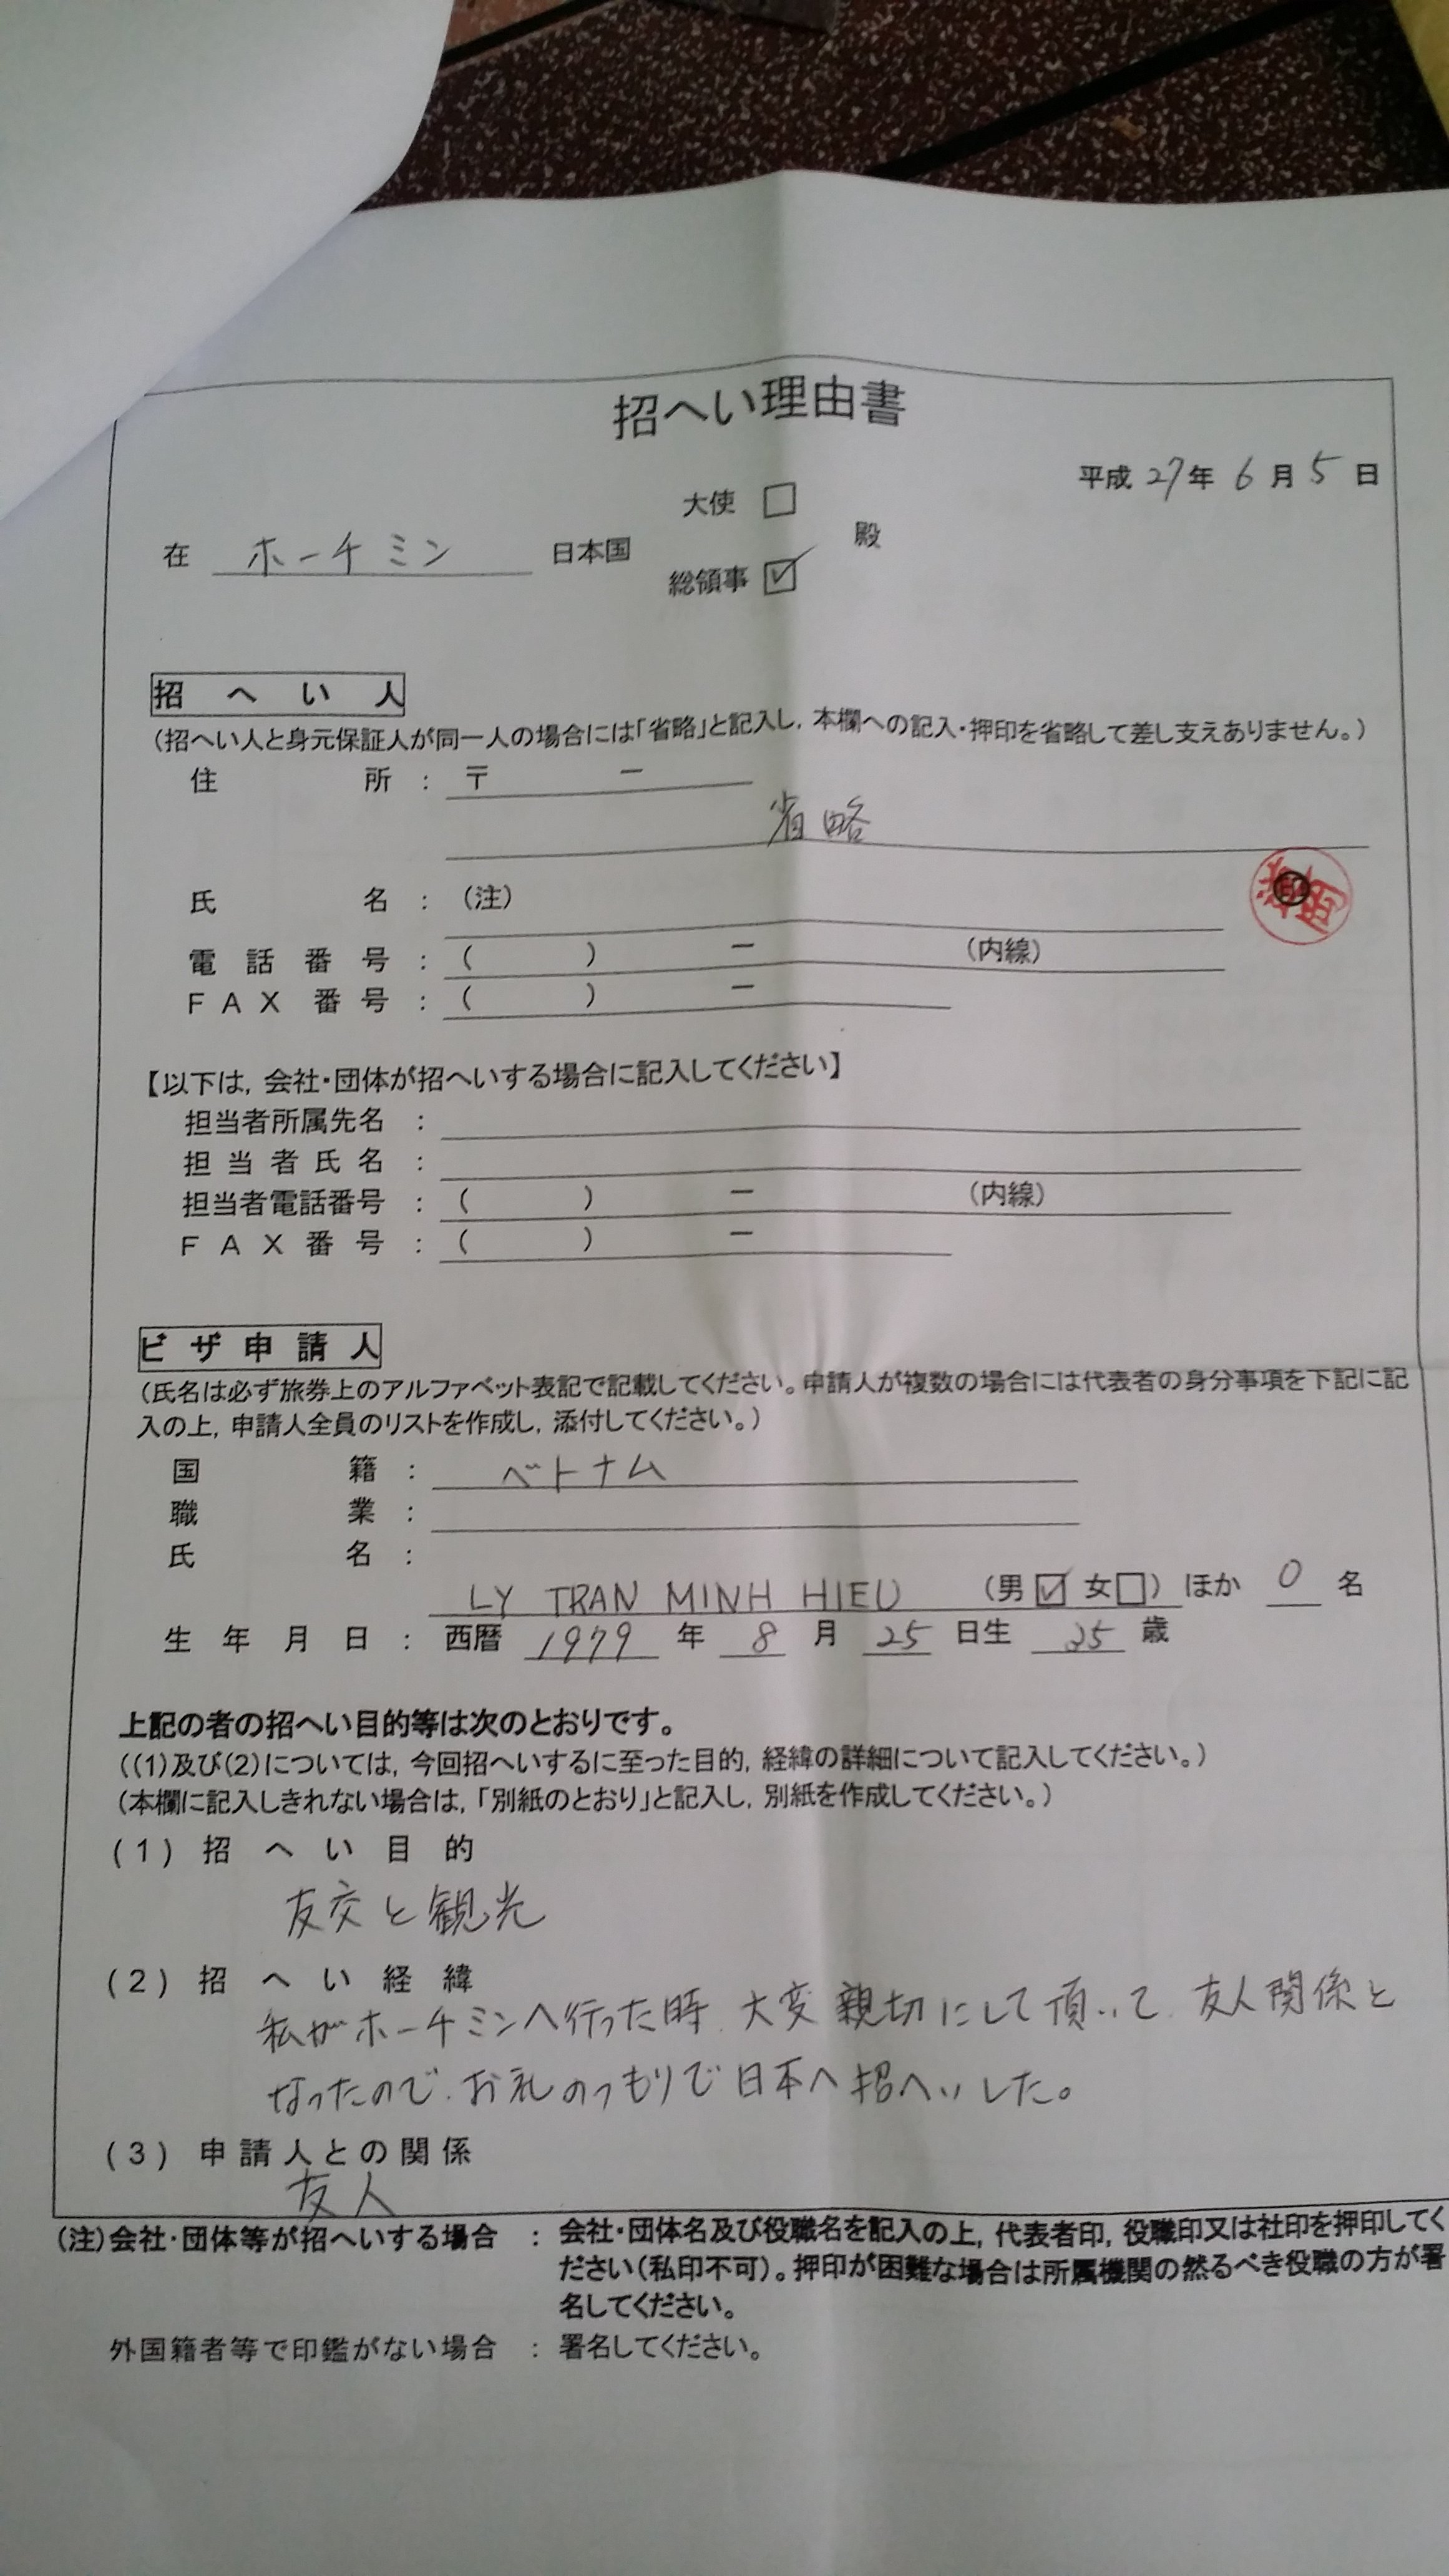 招へい理由書
平成 27年 6月 5日
大使 □
在 ホーチミン 日本国 殿
総領事 ☑
招へい人
(招へい人と身元保証人が同一人の場合には「省略」と記入し, 本欄への記入・押印を省略して差し支えありません。)
住所 : 〒 −
省略
氏名 : (注) 印
電話番号 : ( ) − (内線)
FAX番号 : ( ) −
【以下は, 会社・団体が招へいする場合に記入してください】
担当者所属先名 :
担当者氏名 :
担当者電話番号 : ( ) − (内線)
FAX番号 : ( ) −
ビザ申請人
(氏名は必ず旅券上のアルファベット表記で記載してください。申請人が複数の場合には代表者の身分事項を下記に記
入の上, 申請人全員のリストを作成し, 添付してください。)
国籍 : ベトナム
職業 :
氏名 :
LY TRAN MINH HIEU (男☑ 女□) ほか 0 名
生年月日 : 西暦 1979 年 8 月 25 日生 35 歳
上記の者の招へい目的等は次のとおりです。
((1)及び(2)については, 今回招へいするに至った目的, 経緯の詳細について記入してください。)
(本欄に記入しきれない場合は, 「別紙のとおり」と記入し, 別紙を作成してください。)
(1) 招へい目的
友交と観光
(2) 招へい経緯
私がホーチミンへ行った時、大変親切にして頂いて、友人関係と
なったので、お礼のつもりで日本へ招へいした。
(3) 申請人との関係
友人
(注)会社・団体等が招へいする場合 : 会社・団体名及び役職名を記入の上, 代表者印, 役職印又は社印を押印してく
ださい(私印不可)。押印が困難な場合は所属機関の然るべき役職の方が署
名してください。
外国籍者等で印鑑がない場合 : 署名してください。